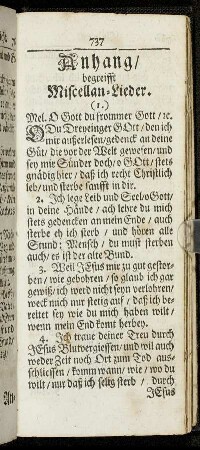 737
Anhang/
begreifft
Miscellan-Lieder.
(1.)
Mel. O Gott du frommer Gott/ ꝛc.
O Du Dreyeiniger GOtt/ den ich
mir außerlesen/ gedenck an deine
Güt/ die vor der Welt gewesen/ und
sey mir Sünder doch/ o GOtt/ stets
gnädig hier/ daß ich recht Christlich
leb/ und sterbe sanfft in dir.
2. Ich lege Leib und Seel/ o Gott/
in deine Hände/ ach lehre du mich
stets gedencken an mein Ende/ auch
sterbe eh ich sterb/ und hören alle
Stund; Mensch/ du must sterben
auch/ es ist der alte Bund.
3. Weil JEsus mir zu gut gestor-
ben/ wie gebohren/ so glaub ich gar
gewiß/ ich werd nicht seyn verlohren/
weck mich nur stetig auf/ daß ich be-
reitet sey wie du mich haben wilt/
wenn mein End komt herbey.
4. Ich traue deiner Treu durch
JEsus Blutvergiessen/ und wil auch
weder Zeit noch Ort zum Tod aus-
schliessen/ komm wann/ wie/ wo du
wilt/ nur daß ich selig sterb/ durch
JEsus